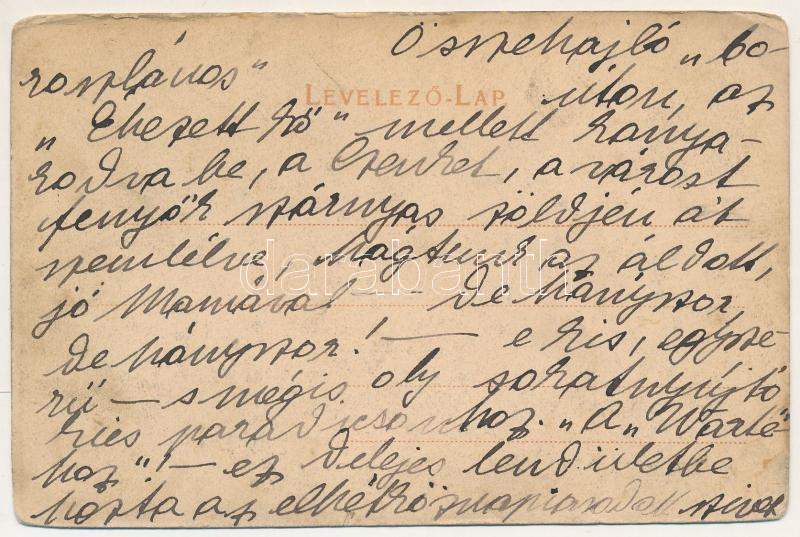 Összehajló „bo-
roszlános”
LEVELEZŐ-LAP
úton, az
„ Éhezett kő” mellett kanya-
rodva be, a Czenket, a várost
fenyők szárnyas zöldjén át
szemlélve, hágtunk az áldott,
jó Mamával — de hányszor
de hányszor! — e kis, egysze-
rű — s mégis oly sokatnyújtó
kies paradicsomhoz. „A „Warté-
hoz”! — ez delejes lendületbe
hozta az elhétköznapiasodott szívet
darabanth